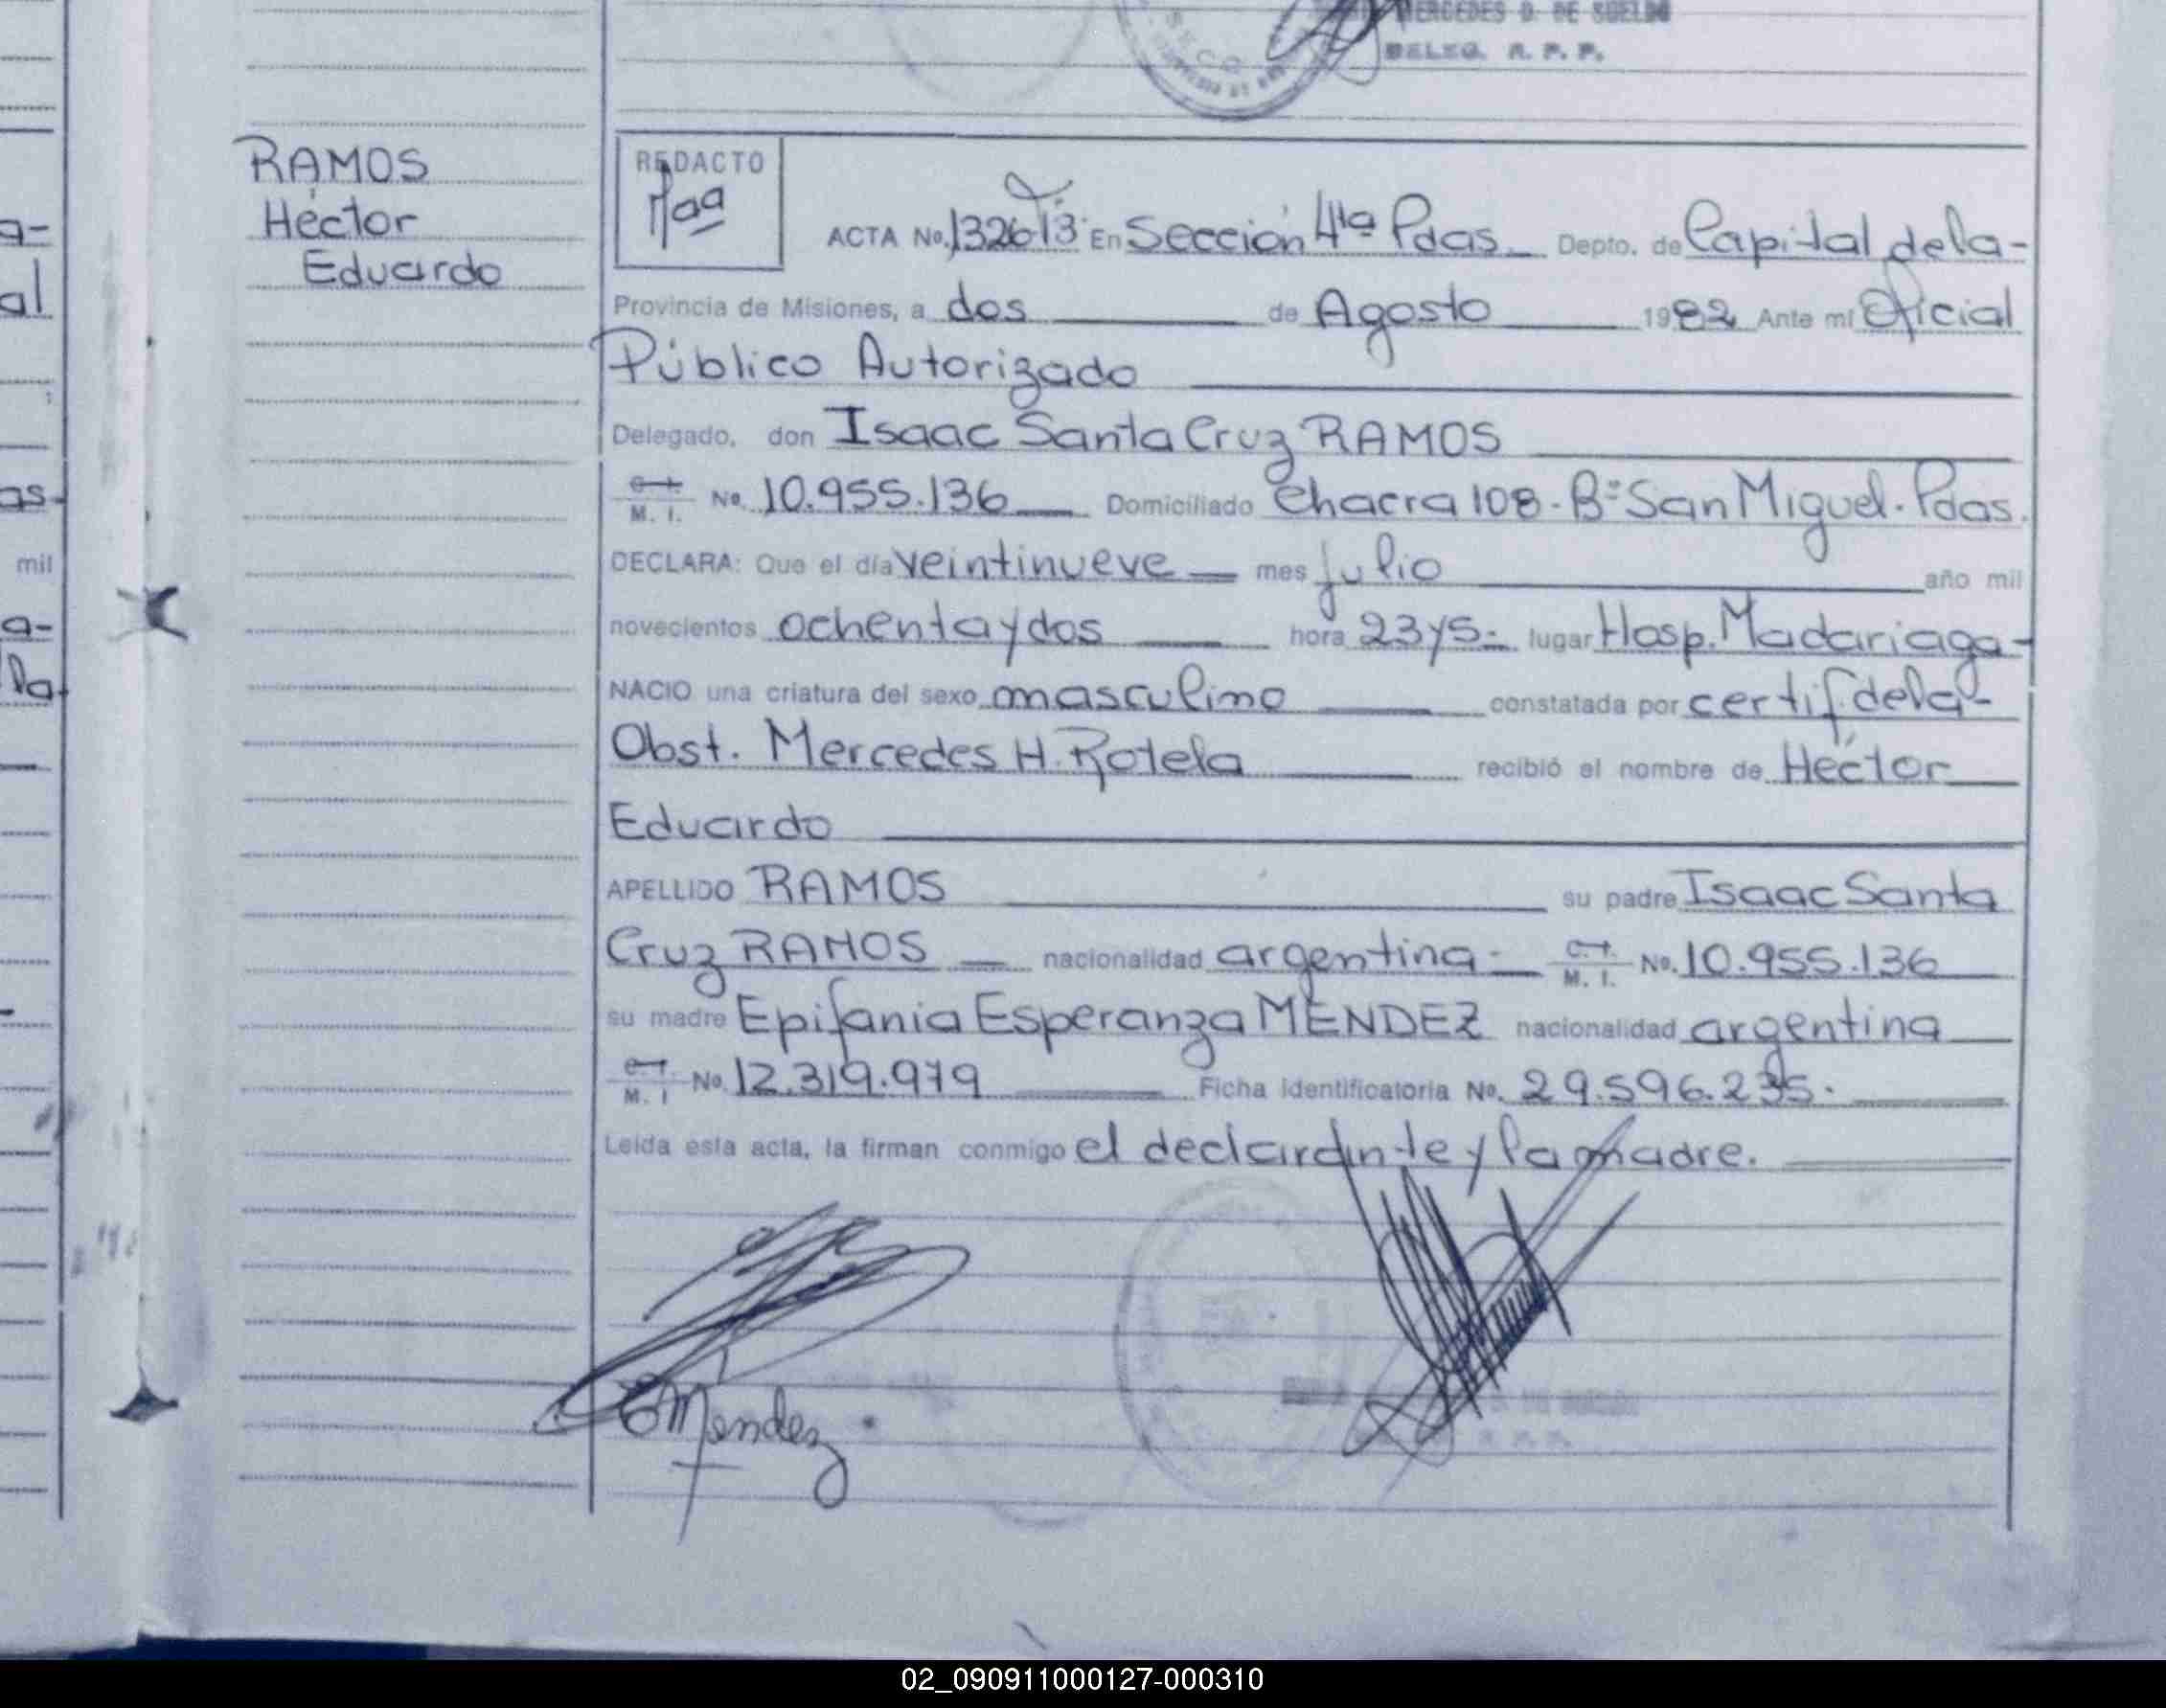 MERCEDES D. DE SUELDO
DELEG. R. P. P.
RAMOS
Héctor
Eduardo
REDACTO
ACTA No. 1326 T3 En Sección 4ta Pdas. Depto. de Capital de la-
Provincia de Misiones, a dos de Agosto 1982 Ante mí Oficial
Público Autorizado
Delegado, don Isaac Santa Cruz RAMOS
M. I. No. 10.955.136 Domiciliado Chacra 108 - Bº San Miguel. Pdas.
DECLARA: Que el día veintinueve mes julio año mil
novecientos ochenta y dos hora 23 y 5- lugar Hosp. Madariaga-
NACIO una criatura del sexo masculino constatada por certif de la-
Obst. Mercedes H. Rotela recibió el nombre de Héctor
Eduardo
APELLIDO RAMOS su padre Isaac Santa
Cruz RAMOS nacionalidad argentina- C. I. M. I. No. 10.955.136
su madre Epifania Esperanza MENDEZ nacionalidad argentina
M. I No 12.319.979 Ficha Identificatoria No. 29.596.235.
Leída esta acta, la firman conmigo el declarante y la madre.
EMendez
a-
al
as-
mil
a-
la
02_090911000127-000310